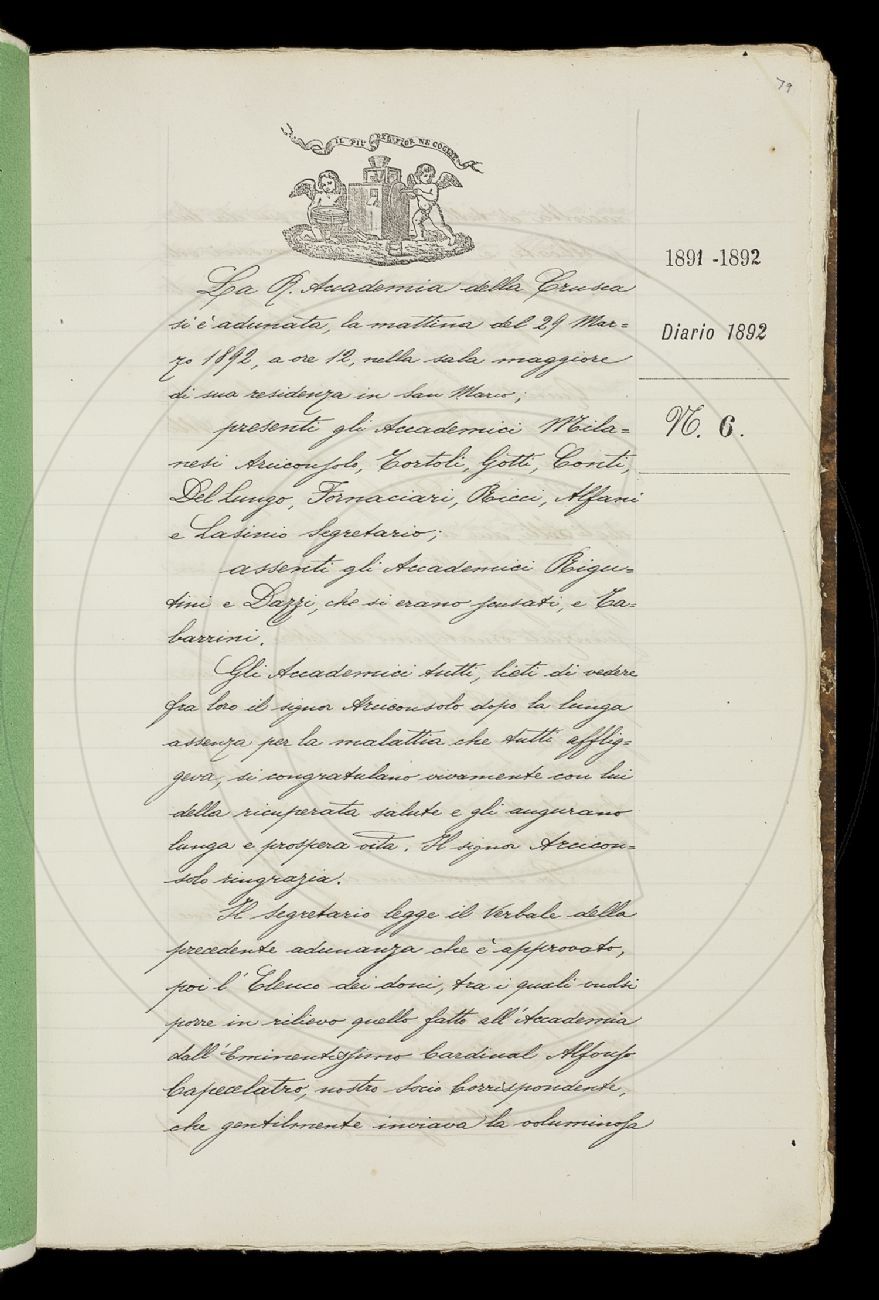 79
IL PIÙ BEL FIOR NE COGLIE
1891 - 1892
Diario 1892
N. 6.
La R. Accademia della Crusca
si è adunata, la mattina del 29 Mar=
zo 1892, a ore 12, nella sala maggiore
di sua residenza in San Marco;
presenti gli Accademici Mila=
nesi Arciconsolo, Tortoli, Gotti, Conti,
Del Lungo, Fornaciari, Ricci, Alfani
e Lasinio Segretario;
assenti gli Accademici Rigu=
tini e Dazzi, che si erano scusati, e Ta=
barrini.
Gli Accademici tutti, lieti di vedere
fra loro il signor Arciconsolo dopo la lunga
assenza per la malattia che tutti afflig=
geva, si congratulano vivamente con lui
della ricuperata salute e gli augurano
lunga e prospera vita. Il signor Arcicon=
solo ringrazia.
Il Segretario legge il Verbale della
precedente adunanza che è approvato,
poi l'Elenco dei doni, tra i quali vuolsi
porre in rilievo quello fatto all'Accademia
dall'Eminentissimo Cardinal Alfonso
Capecelatro, nostro Socio Corrispondente,
che gentilmente inviava la voluminosa